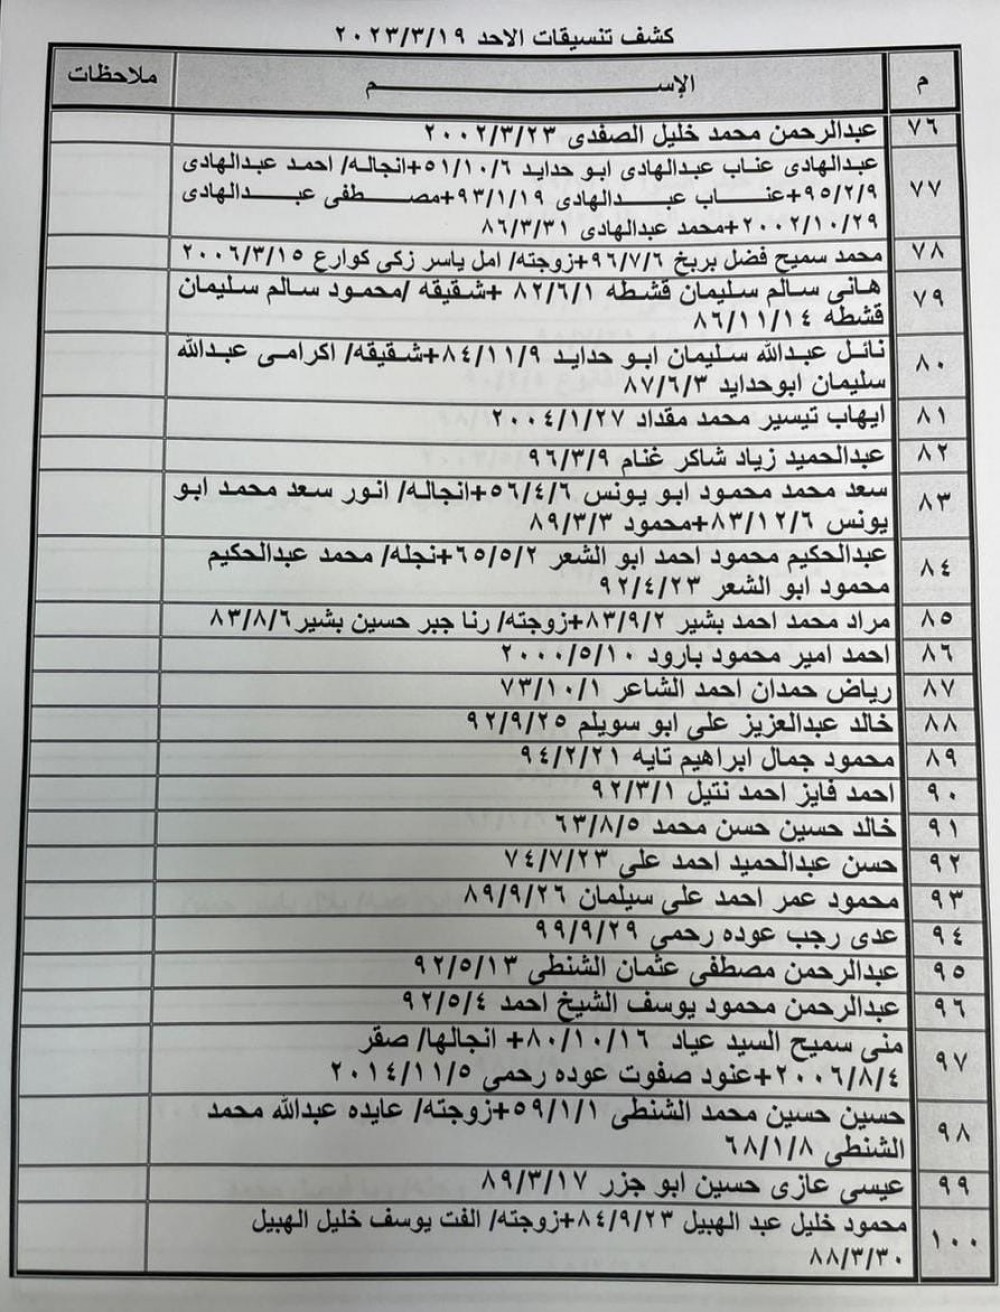 كشف تنسيقات الاحد ٢٠٢٣/٣/١٩
م الإســــــم ملاحظات
٧٦ عبدالرحمن محمد خليل الصفدى ٢٠٠٢/٣/٢٣
٧٧ عبدالهادى عناب عبدالهادى ابو حدايد ٥١/١٠/٦+انجاله/ احمد عبدالهادى
٩٥/٢/٩+عنـــاب عبـــدالهادى ٩٣/١/١٩+مصـــطفى عبـــدالهادى
٢٠٠٢/١٠/٢٩+محمد عبدالهادى ٨٦/٣/٣١
٧٨ محمد سميح فضل بربخ ٩٦/٧/٦+زوجته/ امل ياسر زكى كوارع ٢٠٠٦/٣/١٥
٧٩ هانى سالم سليمان قشطه ٨٢/٦/١ +شقيقه /محمود سالم سليمان
قشطه ٨٦/١١/١٤
٨٠ نائل عبدالله سليمان ابو حدايد ٨٤/١١/٩+شقيقه/ اكرامى عبدالله
سليمان ابوحدايد ٨٧/٦/٣
٨١ ايهاب تيسير محمد مقداد ٢٠٠٤/١/٢٧
٨٢ عبدالحميد زياد شاكر غنام ٩٦/٣/٩
٨٣ سعد محمد محمود ابو يونس ٥٦/٤/٦+انجاله/ انور سعد محمد ابو
يونس ٨٣/١٢/٦+محمود ٨٩/٣/٣
٨٤ عبدالحكيم محمود احمد ابو الشعر ٦٥/٥/٢+نجله/ محمد عبدالحكيم
محمود ابو الشعر ٩٢/٤/٢٣
٨٥ مراد محمد احمد بشير ٨٣/٩/٢+زوجته/ رنا جبر حسين بشير٨٣/٨/٦
٨٦ احمد امير محمود بارود ٢٠٠٠/٥/١٠
٨٧ رياض حمدان احمد الشاعر ٧٣/١٠/١
٨٨ خالد عبدالعزيز على ابو سويلم ٩٢/٩/٢٥
٨٩ محمود جمال ابراهيم تايه ٩٤/٢/٢١
٩٠ احمد فايز احمد نتيل ٩٢/٣/١
٩١ خالد حسين حسن محمد ٦٣/٨/٥
٩٢ حسن عبدالحميد احمد على ٧٤/٧/٢٣
٩٣ محمود عمر احمد على سيلمان ٨٩/٩/٢٦
٩٤ عدى رجب عوده رحمى ٩٩/٩/٢٩
٩٥ عبدالرحمن مصطفى عثمان الشنطى ٩٢/٥/١٣
٩٦ عبدالرحمن محمود يوسف الشيخ احمد ٩٢/٥/٤
٩٧ منى سميح السيد عياد ٨٠/١٠/١٦+ انجالها/ صقر
٢٠٠٦/٨/٤+عنود صفوت عوده رحمى ٢٠١٤/١١/٥
٩٨ حسين حسين محمد الشنطى ٥٩/١/١+زوجته/ عايده عبدالله محمد
الشنطى ٦٨/١/٨
٩٩ عيسى عازى حسين ابو جزر ٨٩/٣/١٧
١٠٠ محمود خليل عبد الهبيل ٨٤/٩/٢٣+زوجته/ الفت يوسف خليل الهبيل
٨٨/٣/٣٠